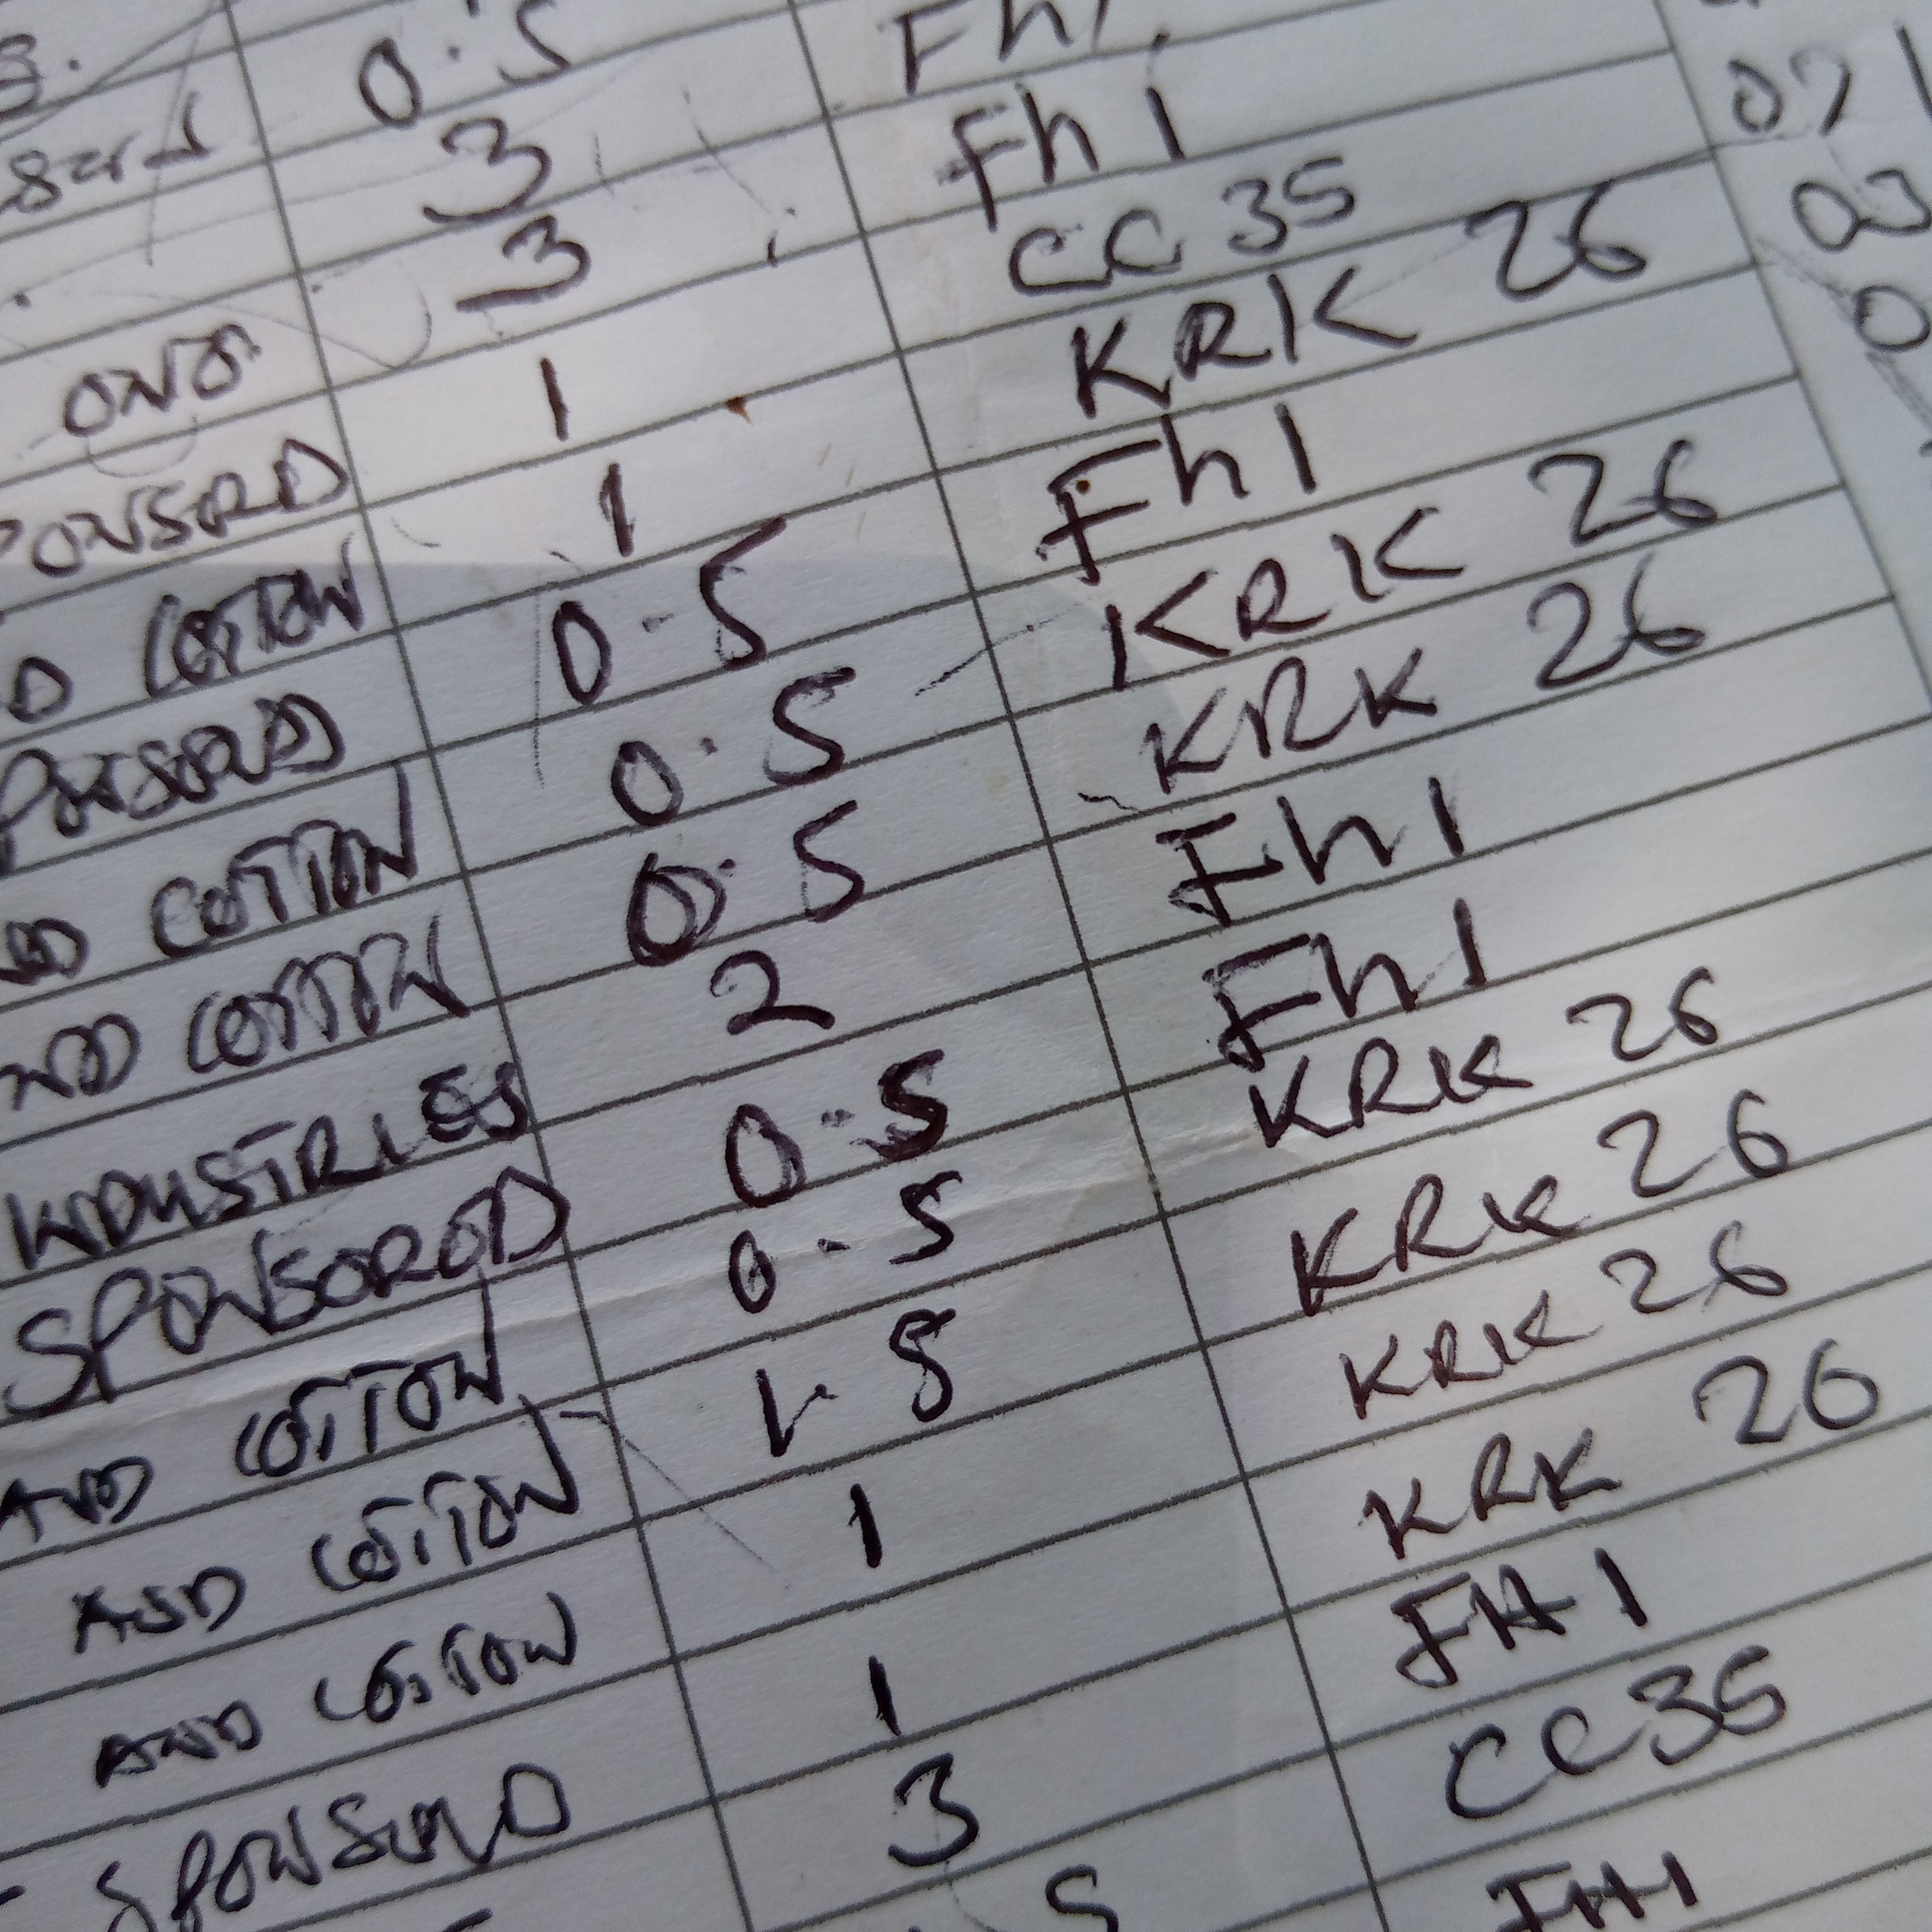 0.5
3 Fh1
ONE 3 Fh1
PONSORD 1 CC 35 071
D COTTON 1 KRK 26 03
PONSORED 0.5 Fh1 0
ND COTTON 0.5 KRK 26
ND COTTON 0.5 KRK 26
INDUSTRIES 2 Fh1
SPONSORED 0.5 Fh1
AND COTTON 0.5 KRK 26
AND COTTON 1.8 KRK 26
AND COTTON 1 KRK 26
SPONSORED 1 KRK 26
3 FH1
5 CC35
FH1